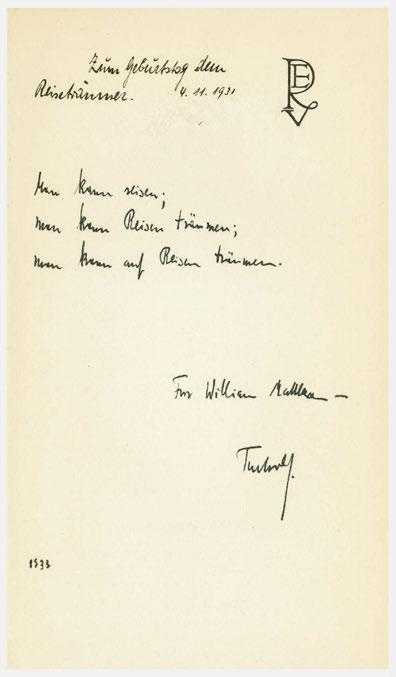 Zum Geburtstag dem
Reiseträumer. 4.11.1931
PERV
Man kann reisen;
man kann Reisen träumen;
man kann auf Reisen träumen.
Für William
Tuchol.
1933